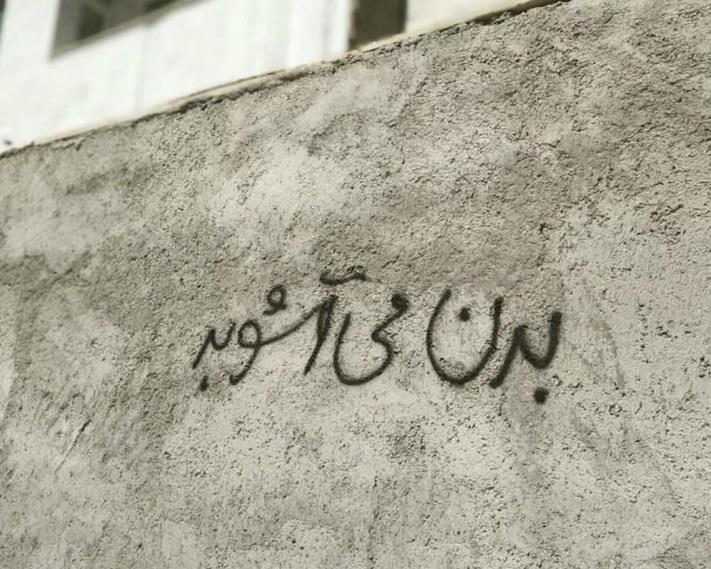 بدن می آشوبد